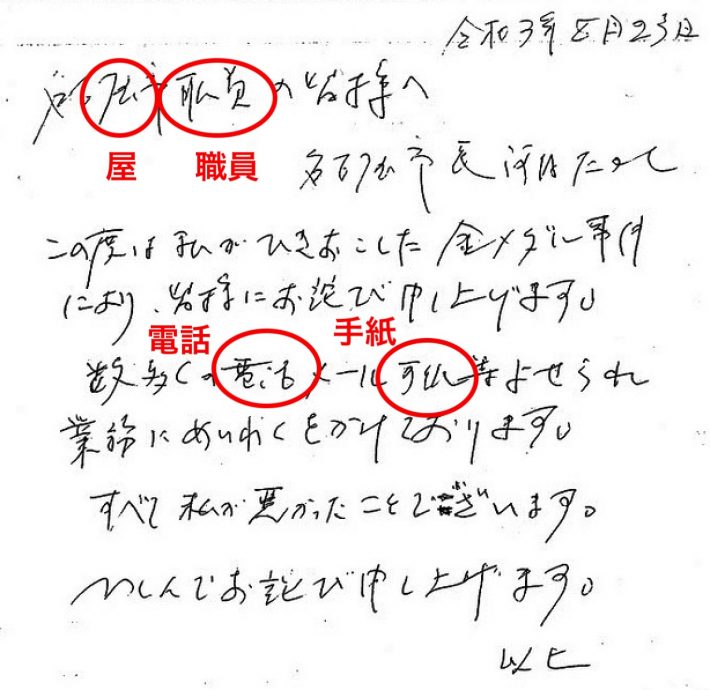 令和3年8月23日
名古屋市職員の皆様へ
屋 職員
名古屋市長 河村たかし
この度は私がひきおこした金メダル事件
により、皆様にお詫び申し上げます。
電話 手紙
数多くの電話メール手紙等よせられ
業務にめいわくをかけております。
すべて私が悪かったことでございます。
つつしんでお詫び申し上げます。
以上